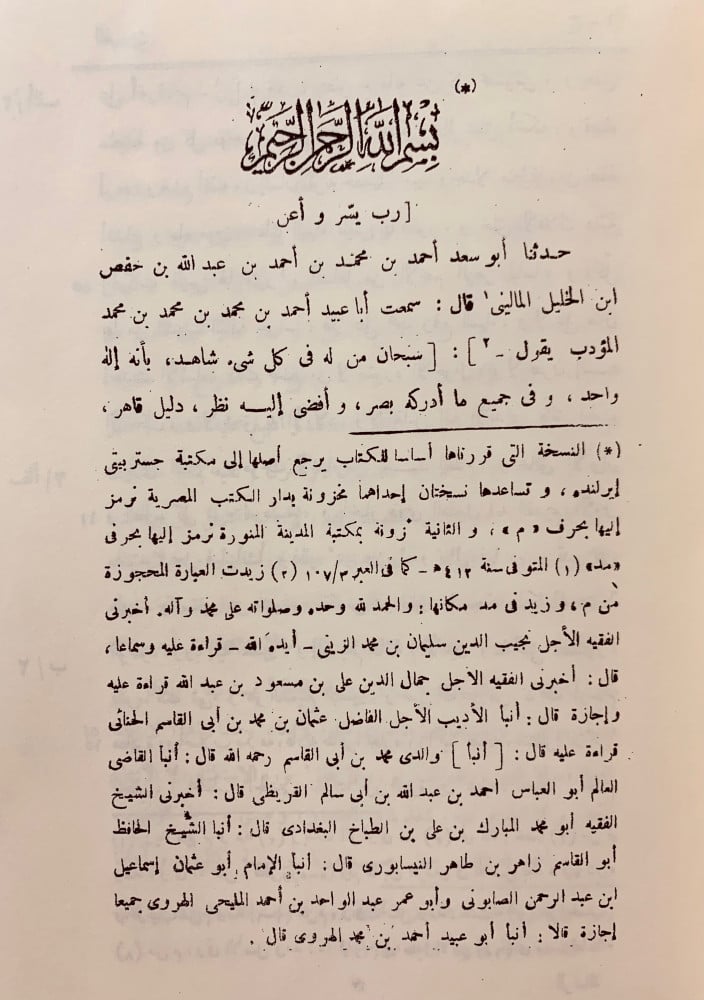 (*)
بِسْمِ اللَّهِ الرَّحْمَنِ الرَّحِيمِ
[رب يسّر و أعن
حدثنا أبو سعد أحمد بن محمد بن أحمد بن عبد الله بن حفص
ابن الخليل المالينى١ قال: سمعت أبا عبيد أحمد بن محمد بن محمد بن محمد
المؤدب يقول ـ٢]: [سبحان من له فى كل شىء شاهد، بأنه إله
واحد، و فى جميع ما أدركه بصر، و أفضى إليه نظر، دليل قاهر،
(*) النسخة التى قررناها أساسا للكتاب يرجع أصلها إلى مكتبة جستربيتى
إيرلنده، و تساعدها نسختان إحداهما مخزونة بدار الكتب المصرية نرمز
إليها بحرف «م»، و الثانية زونة بمكتبة المدينة المنورة نرمز إليها بحرفى
«مد» (١) المتوفى سنة ٤١٢ ه ـ كما فى العبر ٣/١٠٧ (٢) زيدت العبارة المحجوزة
من م، و زيد فى مد مكانها: و الحمد لله وحده و صلواته على محمد و آله. أخبرنى
الفقيه الأجل نجيب الدين سليمان بن محمد الزينى ـ أيده الله ـ قراءة عليه و سماعا،
قال: أخبرنى الفقيه الأجل جمال الدين على بن مسعود بن عبد الله قراءة عليه
و إجازة قال: أنبأ الأديب الأجل الفاضل عثمان بن محمد بن أبى القاسم الحنائى
قراءة عليه قال: [أنبأ] والدى محمد بن أبى القاسم رحمه الله قال: أنبأ القاضى
العالم أبو العباس أحمد بن عبد الله بن أبى سالم القريظى قال: أخبرنى الشيخ
الفقيه أبو محمد المبارك بن على بن الطباخ البغدادى قال: أنبا الشيخ الحافظ
أبو القاسم زاهر بن طاهر النيسابورى قال: أنبأ الإمام أبو عثمان إسماعيل
ابن عبد الرحمن الصابونى و أبو عمر عبد الواحد بن أحمد المليحى الهروى جميعا
إجازة قالا: أنبأ أبو عبيد أحمد بن محمد الهروى قال.